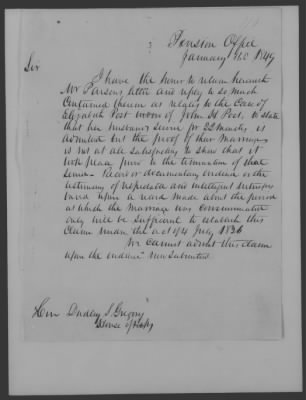 Pension Office
January 1849
Sir
I have the honor to return herewith
Mr Parsons letter and reply to so much
contained therein as relates to the Case of
Elizabeth Post widow of John H Post, to state
that her husband's service for 23 months, is
admitted but the proof of their marriage
is not at all satisfactory to show that it
took place prior to the termination of that
service. Record or documentary evidence or the
testimony of respectable and intelligent witnesses
based upon a record made about the period
at which the marriage was consummated
only will be sufficient to establish this
claim under the act of 4 July 1836
We cannot admit this claim
upon the evidence now submitted.
Hon Dudley S. Gregory
House of Reps